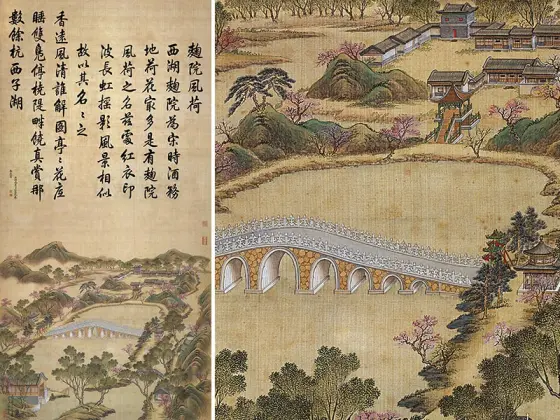 麯院風荷
西湖麯院為宋時酒務
地荷花最多是有麯院
風荷之名茲處紅衣印
波長虹搖影風景相似
故以其名〻之
香遠風清誰解圖亭〻花底
睡雙鳧停橈堤畔饒真賞那
數餘杭西子湖